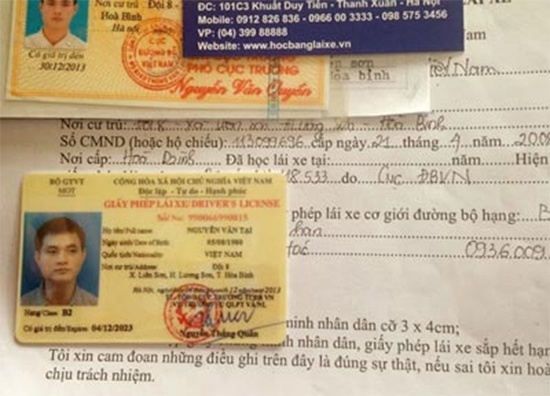 Nơi cư trú Đội 8 -
Hoà Bình
Hà nội,
Có giá trị đến
30/12/2013
CỤC
ĐƯỜNG BỘ
VIỆT NAM
PHÓ CỤC TRƯỞNG
Nguyễn Văn Quyền
ĐC: 101C3 Khuất Duy Tiến - Thanh Xuân - Hà Nội
Mobile: 0912 826 836 - 0966 00 3333 - 098 575 3456
VP: (04) 399 88888
Website: www.hocbanglaixe.vn
sơn
òa bình
Nam
Nơi cư trú:
Hòa Bình
Số CMND (hoặc hộ chiếu): 113099696 cấp ngày 21 tháng 4 năm 200
Nơi cấp: Hòa Bình Đã học lái xe tại: năm Hiện
18.533 do Cục ĐBVN
phép lái xe cơ giới đường bộ hạng: B
0936009
BỘ GTVT
MOT
CỘNG HÒA XÃ HỘI CHỦ NGHĨA VIỆT NAM
Độc lập - Tự do - Hạnh phúc
GIẤY PHÉP LÁI XE/DRIVER'S LICENSE
Số/No: 790066990815
Họ tên/Full name: NGUYỄN VĂN TẠI
Ngày sinh/Date of Birth: 05/08/1980
Quốc tịch/Nationality: VIỆT NAM
Nơi cư trú/Address: Đội 8
X. Liên Sơn, H. Lương Sơn, T. Hòa Bình
Hà Nội, 12 năm/2013
TL. TỔNG CỤC TRƯỞNG TCĐB VN
VỤ TRƯỞNG VỤ QLPT VÀ NL
Hạng/Class: B2
Có giá trị đến/Expires: 04/12/2023
Nguyễn Thắng Quân
minh nhân dân cỡ 3 x 4cm;
minh nhân dân, giấy phép lái xe sắp hết hạn
Tôi xin cam đoan những điều ghi trên đây là đúng sự thật, nếu sai tôi xin hoà
chịu trách nhiệm.